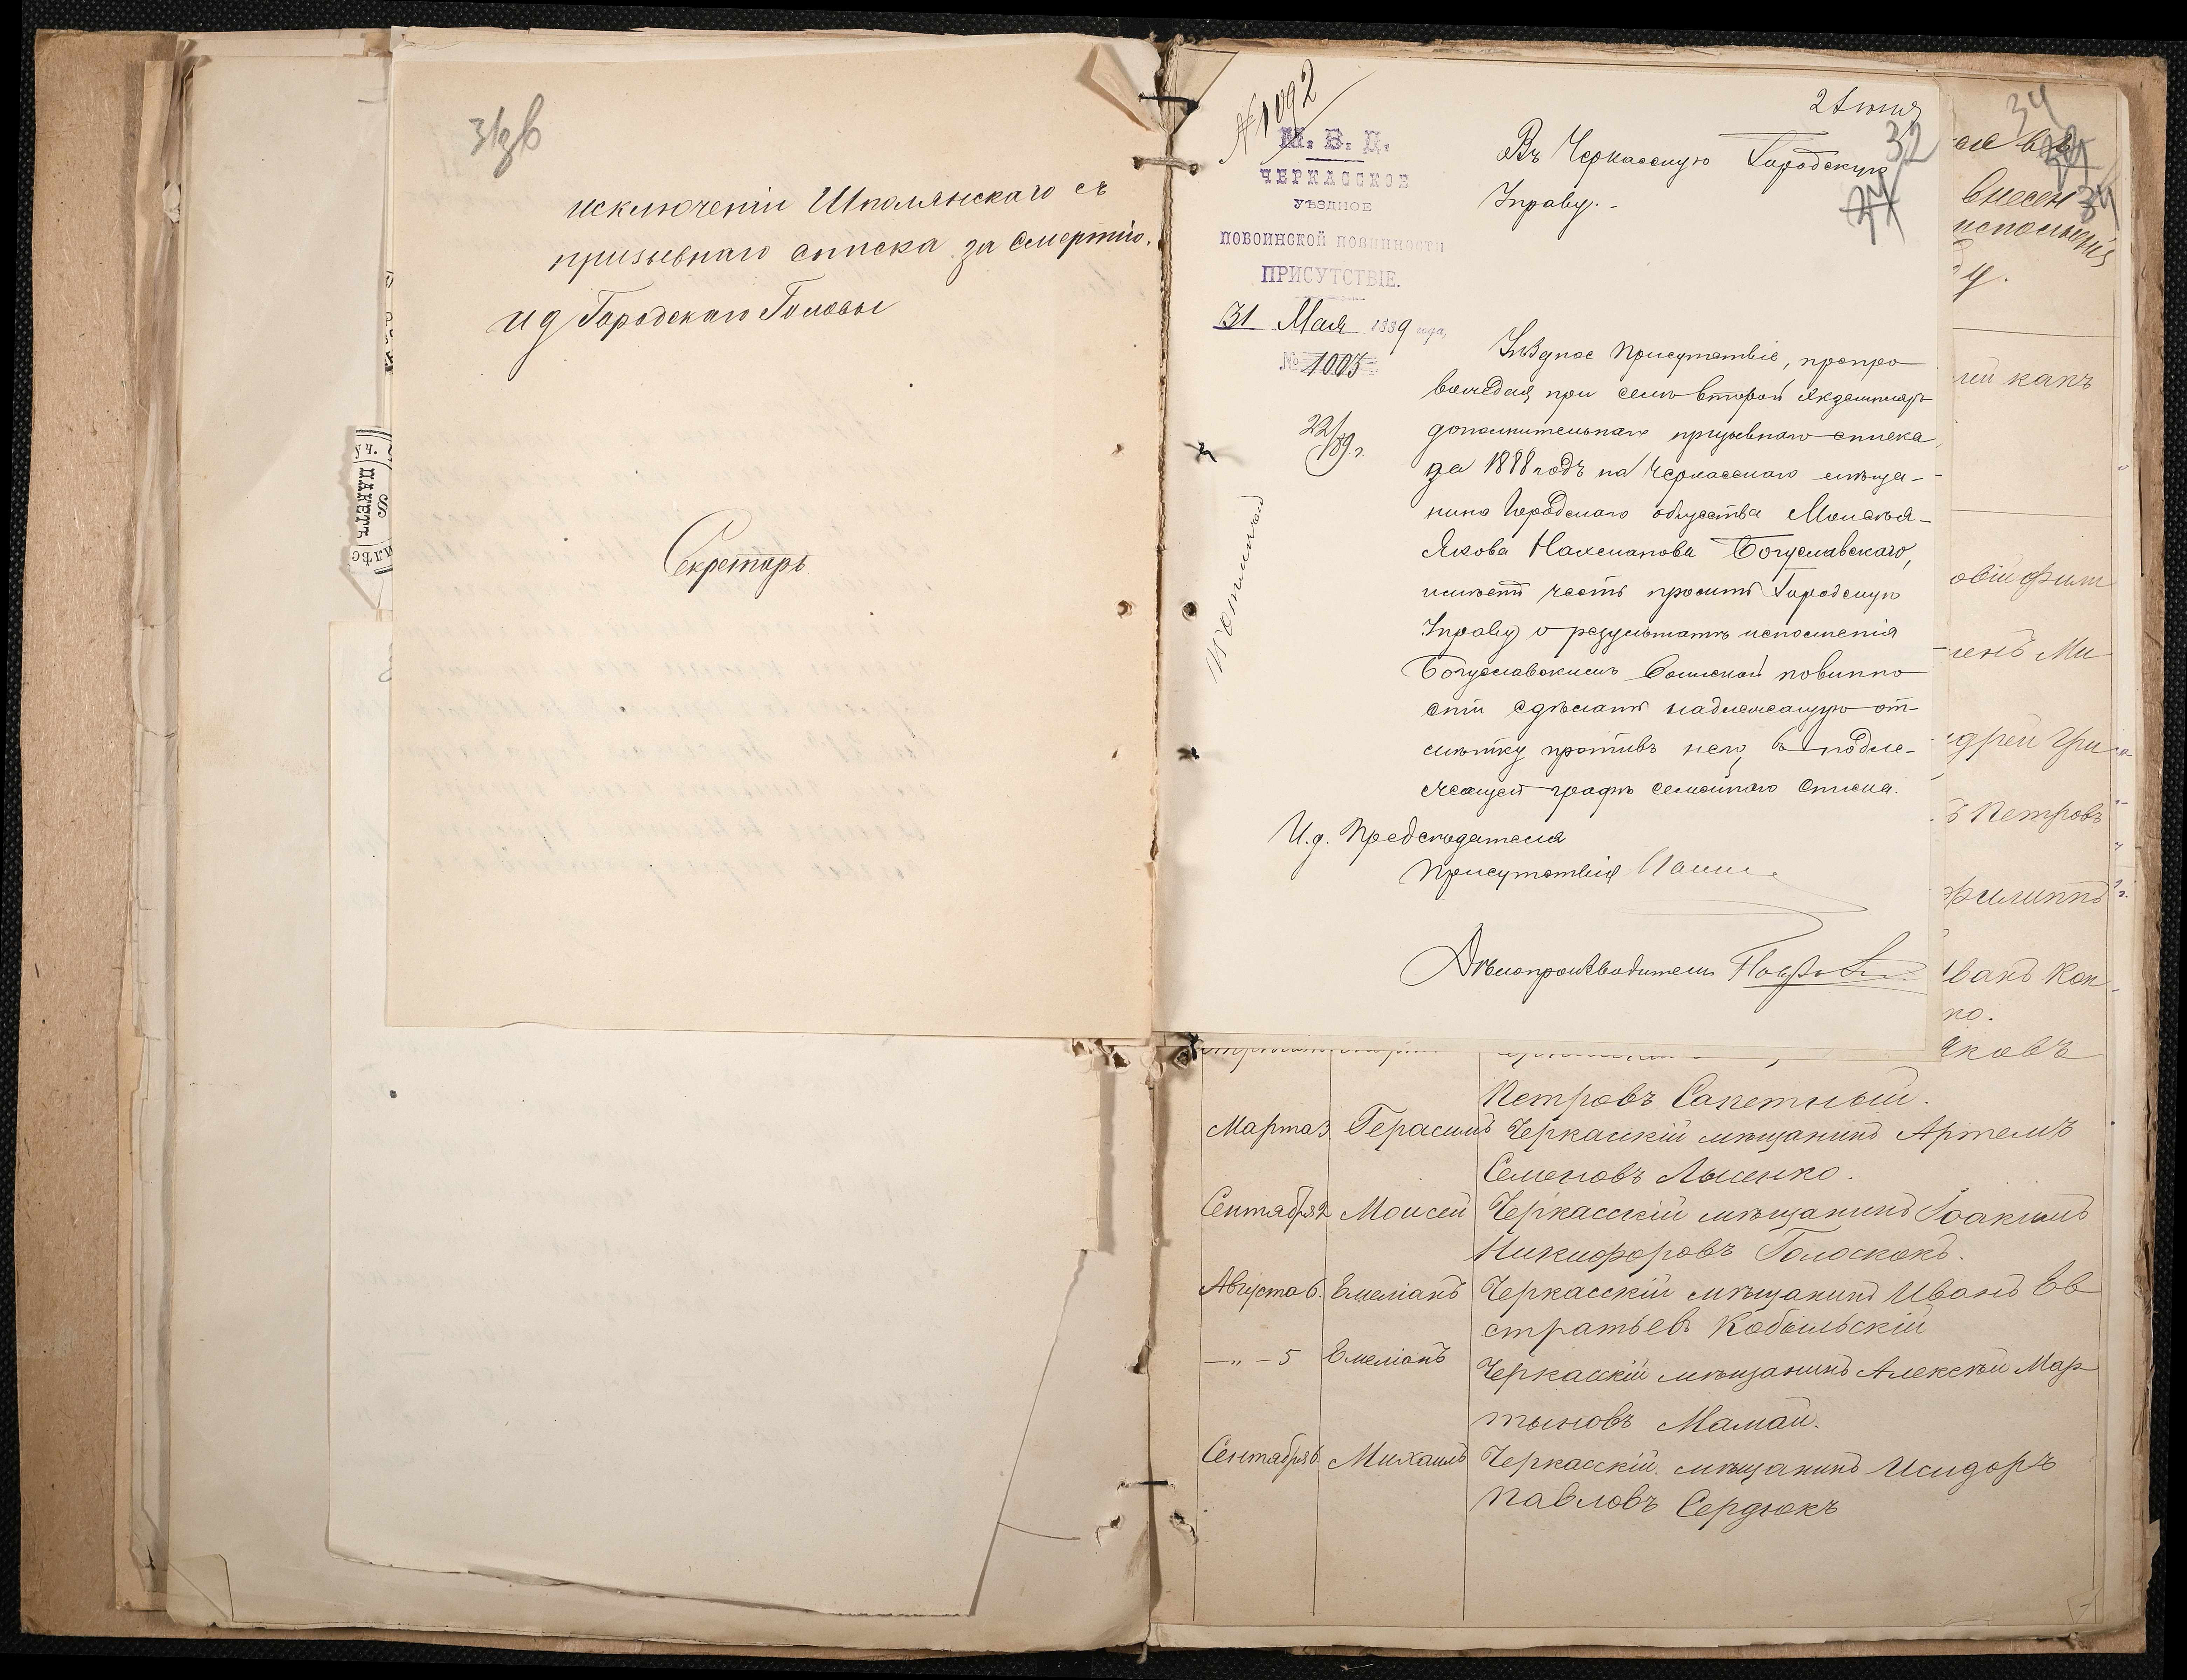 31зв
исключеніи Шполянскаго съ
призывнаго списка за Смертію.
И д Городскаго Головы
Секретарь
№ 1092
2 Іюня
32
М. В. Д.
ЧЕРКАССКОЕ
УѢЗДНОЕ
ПОВОИНСКОЙ ПОВИННОСТИ
ПРИСУТСТВІЕ.
31 Мая 1889 года,
№ 1003
22/89 г.
Въ Черкасскую Городскую
Управу.-
Уѣздное Присутствіе, препро
вождая при семъ второй экземпляръ
дополнительнаго призывнаго списка
за 1888 годъ на Черкасскаго мѣща-
нина Городскаго общества Мошка-
Якова Нахманова Богуславскаго,
имѣетъ честь просить Городскую
Управу о результатѣ исполненія
Богуславскимъ Воинской повинно
сти сдѣлать надлежащую от-
мѣтку противъ него, въ подле-
жащей графѣ семейнаго списка.
И.д. Предсѣдателя
Присутствія
Дѣлопроизводитель
34
внесен
34
исполненія
лей какъ
ленъ Ми
дрей Гри
ъ Петровъ
Филиппъ
Иванъ Кон
но.
яковъ
Петровъ Сапетный.
Марта 3 Герасимъ Черкасскій мѣщанинъ Артемъ
Семеновъ Лысенко.
Сентября 2 Моисей Черкасскій мѣщанинъ Іоакимъ
Никифоровъ Голоскокъ.
Августа 6. Емеліанъ Черкасскій мѣщанинъ Иванъ Ев
стратьев Кобыльскій
—„— 5 Емеліанъ Черкасскій мѣщанинъ Алексѣй Мар
тыновъ Мамай.
Сентября 6 Михаилъ Черкасскій мѣщанинъ Исидоръ
Павловъ Сердюкъ
ПАКЕТЪ